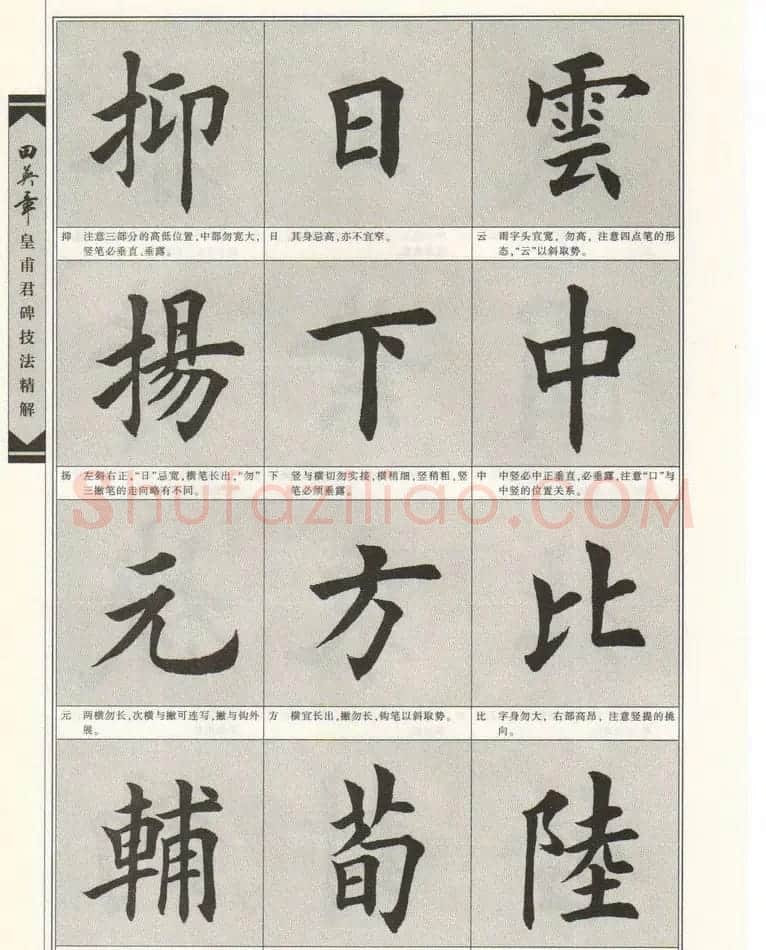 田英章
皇甫君碑技法精解
雲
云 雨字头宜宽，勿高，注意四点笔的形
态，“云”以斜取势。
中
中 中竖必中正垂直，必垂露，注意“口”与
中竖的位置关系。
比
比 字身勿大，右部高昂，注意竖提的挑
向。
陸
日
日 其身忌高，亦不宜窄。
下
下 竖与横切勿实接，横稍细，竖稍粗，竖
笔必须垂露。
方
方 横宜长出，撇勿长，钩笔以斜取势。
荀
抑
抑 注意三部分的高低位置，中部勿宽大，
竖笔必垂直、垂露。
揚
扬 左斜右正，“日”忌宽，横笔长出，“勿”
三撇笔的走向略有不同。
元
元 两横勿长，次横与撇可连写，撇与钩外
展。
輔
Shufaziliao.COM